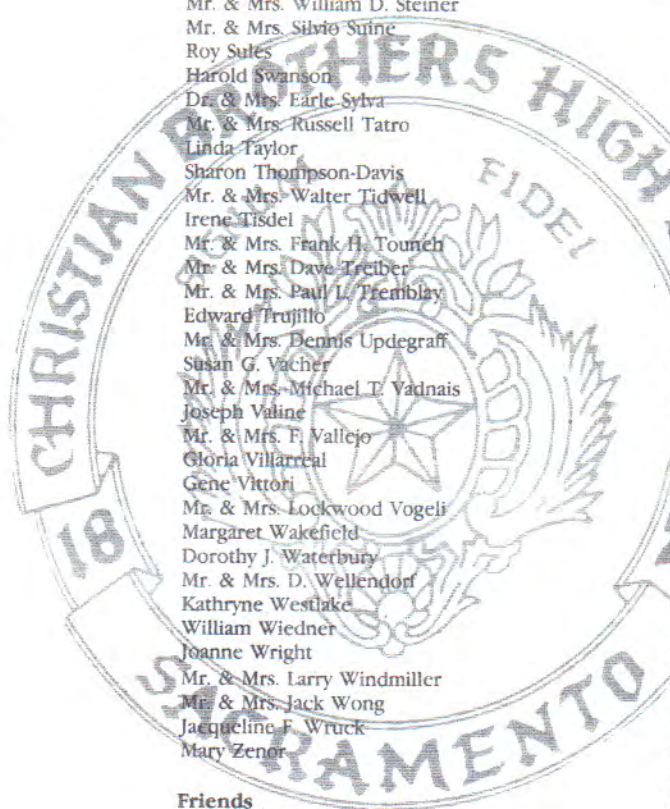 Mr. & Mrs. William D. Steiner
Mr. & Mrs. Silvio Suine
Roy Sules
Harold Swanson
Dr. & Mrs. Earle Sylva
Mr. & Mrs. Russell Tatro
Linda Taylor
Sharon Thompson-Davis
Mr. & Mrs. Walter Tidwell
Irene Tisdel
Mr. & Mrs. Frank H. Touneh
Mr. & Mrs. Dave Treiber
Mr. & Mrs. Paul L. Tremblay
Edward Trujillo
Mr. & Mrs. Dennis Updegraff
Susan G. Vacher
Mr. & Mrs. Michael T. Vadnais
Joseph Valine
Mr. & Mrs. F. Vallejo
Gloria Villarreal
Gene Vittori
Mr. & Mrs. Lockwood Vogeli
Margaret Wakefield
Dorothy J. Waterbury
Mr. & Mrs. D. Wellendorf
Kathryne Westlake
William Wiedner
Joanne Wright
Mr. & Mrs. Larry Windmiller
Mr. & Mrs. Jack Wong
Jacqueline F. Wruck
Mary Zenor
Friends
CHRISTIAN BROTHERS HIGH
FIDEI
18
SACRAMENTO